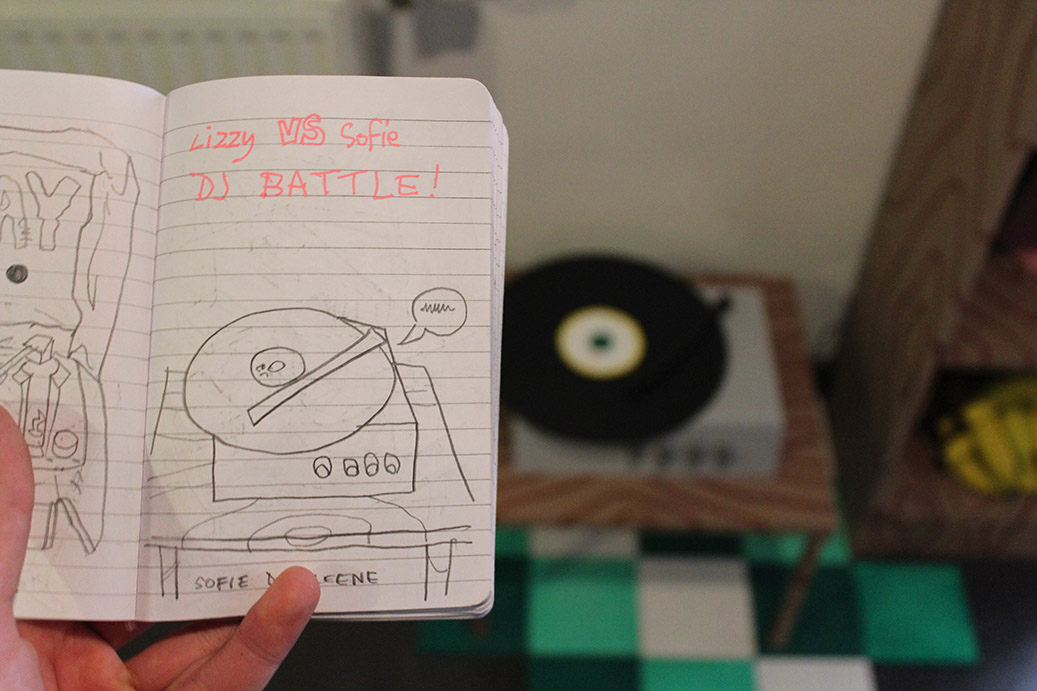 Lizzy VS Sofie
DJ BATTLE!
SOFIE